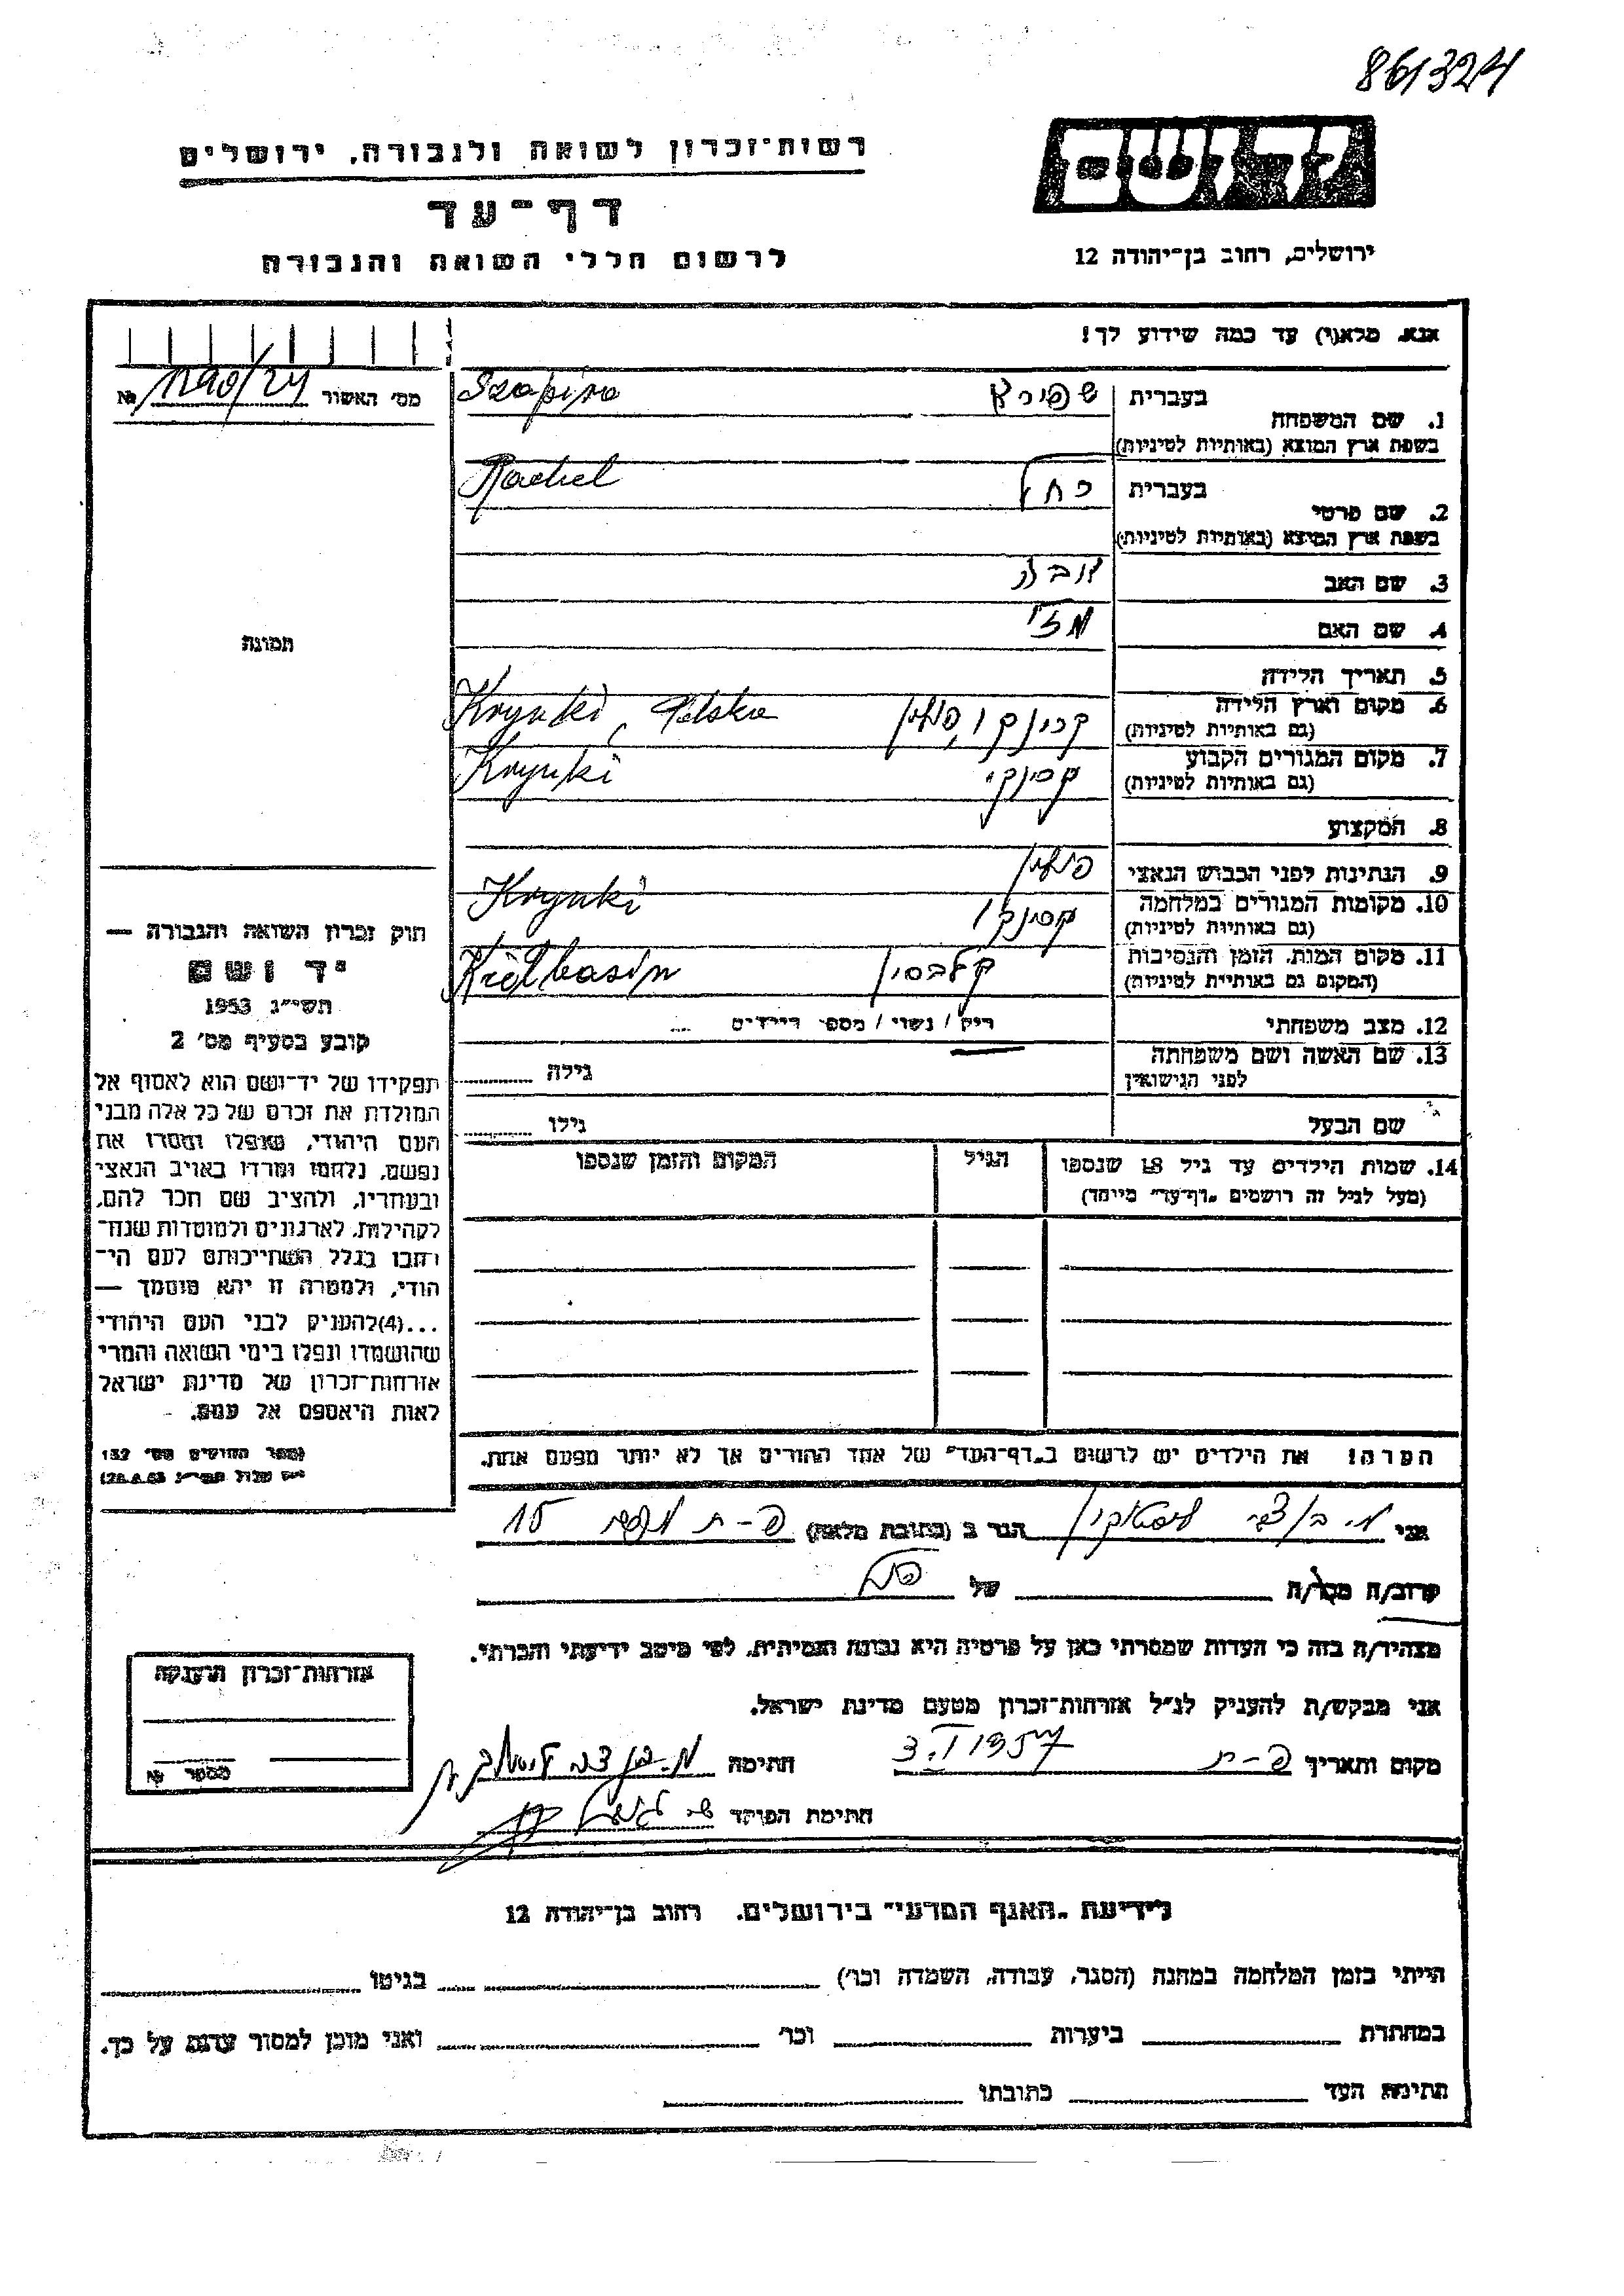 861324
רשות־זכרון לשואה ולגבורה, ירושלים
דף־עד
לרשום חללי השואה והגבורה
ידושם
ירושלים, רחוב בן־יהודה 12
אנא, מלא(י) עד כמה שידוע לך!
מס׳ האשור 1290/24 №
1. שם המשפחה
בעברית שפירא Szapiro
בשפת ארץ המוצא (באותיות לטיניות)
2. שם פרטי
בעברית רחל Rachel
בשפת ארץ המוצא (באותיות לטיניות)
3. שם האב
4. שם האם
תמונה
5. תאריך הלידה
6. מקום וארץ הלידה קרינקי, פולין Krynki, Polska
(גם באותיות לטיניות)
7. מקום המגורים הקבוע קרינקי Krynki
(גם באותיות לטיניות)
8. המקצוע
9. הנתינות לפני הכבוש הנאצי פולין
10. מקומות המגורים במלחמה קרינקי Krynki
(גם באותיות לטיניות)
11. מקום המות, הזמן והנסיבות קלבסין Kiełbasin
(המקום גם באותיות לטיניות)
12. מצב משפחתי רווק / נשוי / מספר הילדים
13. שם האשה ושם משפחתה
לפני הנישואין גילה
שם הבעל גילו
חוק זכרון השואה והגבורה —
יד ושם
תשי״ג 1953
קובע בסעיף מס׳ 2
תפקידו של יד־ושם הוא לאסוף אל
המולדת את זכרם של כל אלה מבני
העם היהודי, שנפלו ומסרו את
נפשם, נלחמו ומרדו באויב הנאצי
ובעוזריו, ולהציב שם וזכר להם,
לקהילות, לארגונים ולמוסדות שנח־
רבו בגלל השתייכותם לעם הי־
הודי, ולמטרה זו יהא מוסמך —
...(4)להעניק לבני העם היהודי
שהושמדו ונפלו בימי השואה והמרי
אזרחות־זכרון של מדינת ישראל
לאות היאספם אל עמם.
(ספר החוקים מס׳ 132
14. שמות הילדים עד גיל 18 שנספו הגיל המקום והזמן שנספו
(מעל לגיל זה רושמים „דף־עד״ מיוחד)
הערה! את הילדים יש לרשום ב„דף־העד״ של אחד ההורים אך לא יותר מפעם אחת.
אני מ. בן צבי הגר ב (כתובת מלאה) פ־ת 15
קרוב/ה מכר/ה של
מצהיר/ה בזה כי העדות שמסרתי כאן על פרטיה היא נכונה ואמיתית, לפי מיטב ידיעתי והכרתי.
אני מבקש/ת להעניק לנ״ל אזרחות־זכרון מטעם מדינת ישראל.
מקום ותאריך פ־ת חתימה מ. בן צבי
חתימת הפוקד
אזרחות־זכרון הוענקה
מספר №
לידיעת „האגף המדעי״ בירושלים, רחוב בן־יהודה 12
הייתי בזמן המלחמה במחנה (הסגר, עבודה, השמדה וכו׳) בגיטו
במחתרת ביערות וכו׳ ואני מוכן למסור עדות על כך.
חתימת העד כתובתו